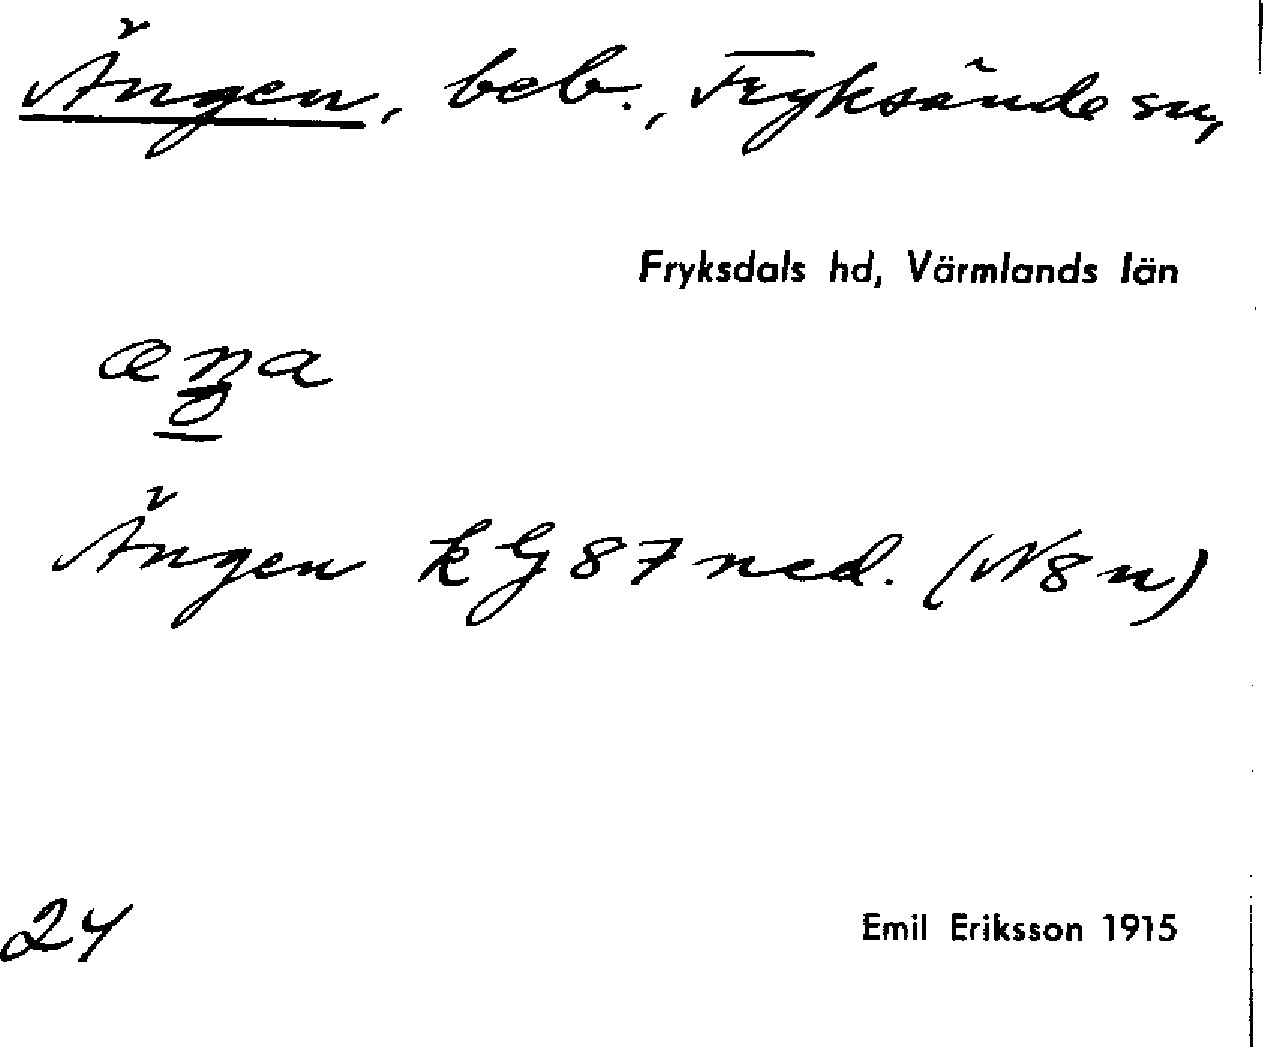 Ängen, beb., Fryksände sn,
Fryksdals hd, Värmlands län
Ängen k G 87 ned. (N 8 n)
24
Emil Eriksson 1915